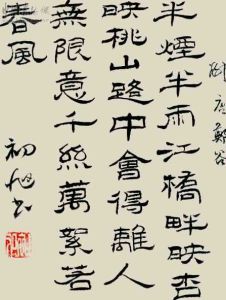 柳 唐 鄭谷
半煙半雨江橋畔映杏
映桃山路中會得離人
無限意千絲萬絮若
春風
初旭书